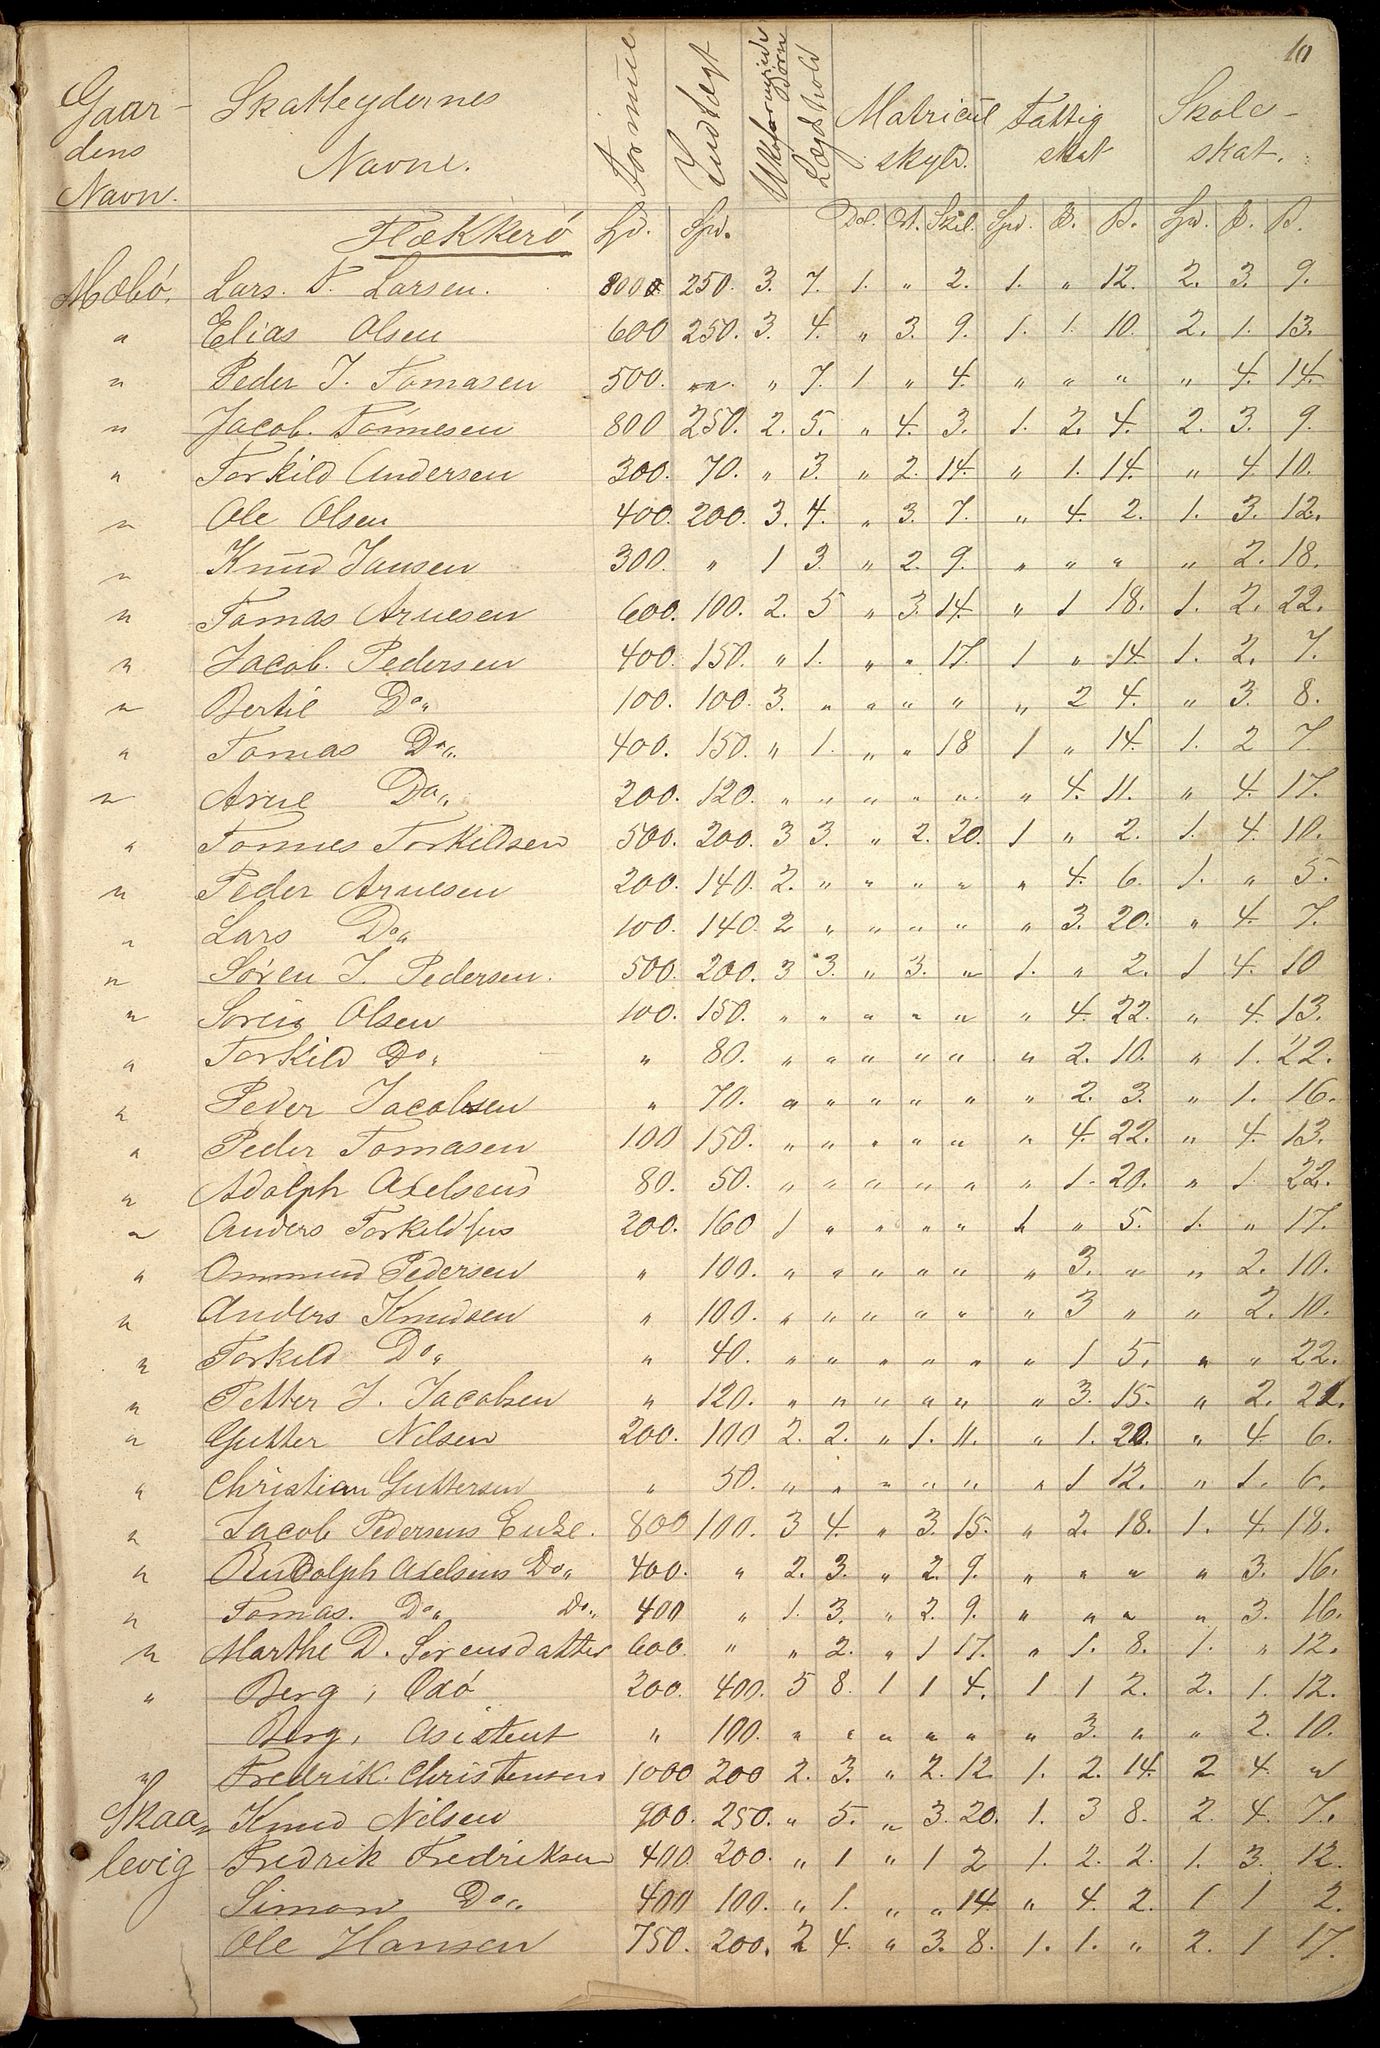 10
Gaardens Navn. Skatteydernes Navne. Formue Indtægt Ukeforsynede Børn Lægdshold Matricul skyld. Fattig skat Skole-skat.
Flækkerö Spd. Spd. Dal. Ort. Skil. Spd. Ø. S. Spd. Ø. S.
Mæbö. Lars. T. Larsen. 8000 250. 3. 7. 1. " 2. 1. " 12. 2. 3. 9.
" Elias Olsen 600 250. 3. 4. " 3. 9. 1. 1. 10. 2. 1. 13.
" Peder J. Tomasen 500. " " 7. 1. " 4. " " " " 4. 14.
" Jacob. Tönnesen 800 250. 2. 5. " 4. 3. 1. 2. 4. 2. 3. 9.
" Torkild Andersen 300. 70. " 3. " 2. 14. " 1. 14. " 4. 10.
" Ole Olsen 400. 200. 3. 4. " 3. 7. " 4. 2. 1. 3. 12.
" Knud Jansen 300. " 1 3. " 2. 9. " " " " 2. 18.
" Tomas Arnesen 600. 100. 2. 5 " 3. 14. " 1 18. 1. 2. 22.
" Jacob. Pedersen 400. 150. " 1. " " 17. 1 " 14 1. 2. 7.
" Bertil Do" 100. 100. 3. " " " " " 2 4. " 3. 8.
" Tomas Do". 400. 150. " 1. " " 18 1 " 14. 1. 2 7.
" Arne Do" 200. 120. " " " " " " 4. 11. " 4. 17.
" Tönnes Torkildsen 500. 200. 3 3. " 2. 20. 1 " 2. 1. 4. 10.
" Peder Arnesen 200. 140. 2. " " " " " 4. 6. 1. " 5.
" Lars Do" 100. 140. 2 " " " " " 3. 20. " 4. 7.
" Sören J. Pedersen. 500. 200. 3 3. " 3. " 1. " 2. 1 4. 10
" Sören Olsen 100. 150. " " " " " " 4. 22. " 4. 13.
" Torkild Do" " 80. " " " " " " 2. 10. " 1. 22.
" Peder Jacobsen " 70. " " " " " " 2. 3. " 1. 16.
" Peder Tomasen 100 150. " " " " " " 4. 22. " 4. 13.
" Adolph Axelsens 80. 50. " " " " " " 1. 20. " 1 22.
" Anders Torkildsens 200. 160 1 " " " " 1 " 5. 1. " 17.
" Ommund Pedersen " 100. " " " " " " 3. " " 2. 10.
" Anders Knudsen " 100. " " " " " " 3 " " 2. 10.
" Torkild Do" " 40. " " " " " " 1 5. " " 22.
" Petter J. Jacobsen " 120. " " " " " " 3. 15. " 2. 21.
" Gutter Nilsen 200. 100 2. 2. " 1. 11. " 1. 20. " 4. 6.
" Christian Guttersen " 50. " " " " " " 1 12. " 1. 6.
" Jacob Pedersens Enke. 800 100. 3 4. " 3. 15. " 2. 18. 1. 4. 18.
" Rudolph Axelsens Do" 400. " 2. 3. " 2. 9. " " " " 3. 16.
" Tomas. Do" Do" 400 " 1. 3. " 2. 9. " " " " 3. 16.
" Marthe D. Sørensdatter 600. " " 2. " 1 17. " 1. 8. 1. " 12.
" Berg, Odö 200. 400. 5 8. 1 1 4. 1 1 2. 2. 1. 12.
Berg, Asistent " 100. " " " " " " 3. " " 2. 10.
" Fredrik. Christensen 1000 200 2. 3. " 2. 12. 1. 2. 14. 2 4. "
Skaa- Knud Nilsen 900. 250. " 5. " 3. 20. 1. 3 8. 2. 4. 7.
levig Fredrik Fredriksen 400. 200. " 1 " 1 2 1. 2. 2. 1. 3. 12.
Simon Do" 400 100. " 1. " " 14 " 4. 2. 1 1 2.
Ole Hansen 750. 200. 2 4. " 3. 8. 1. 1. " 2. 1 17.